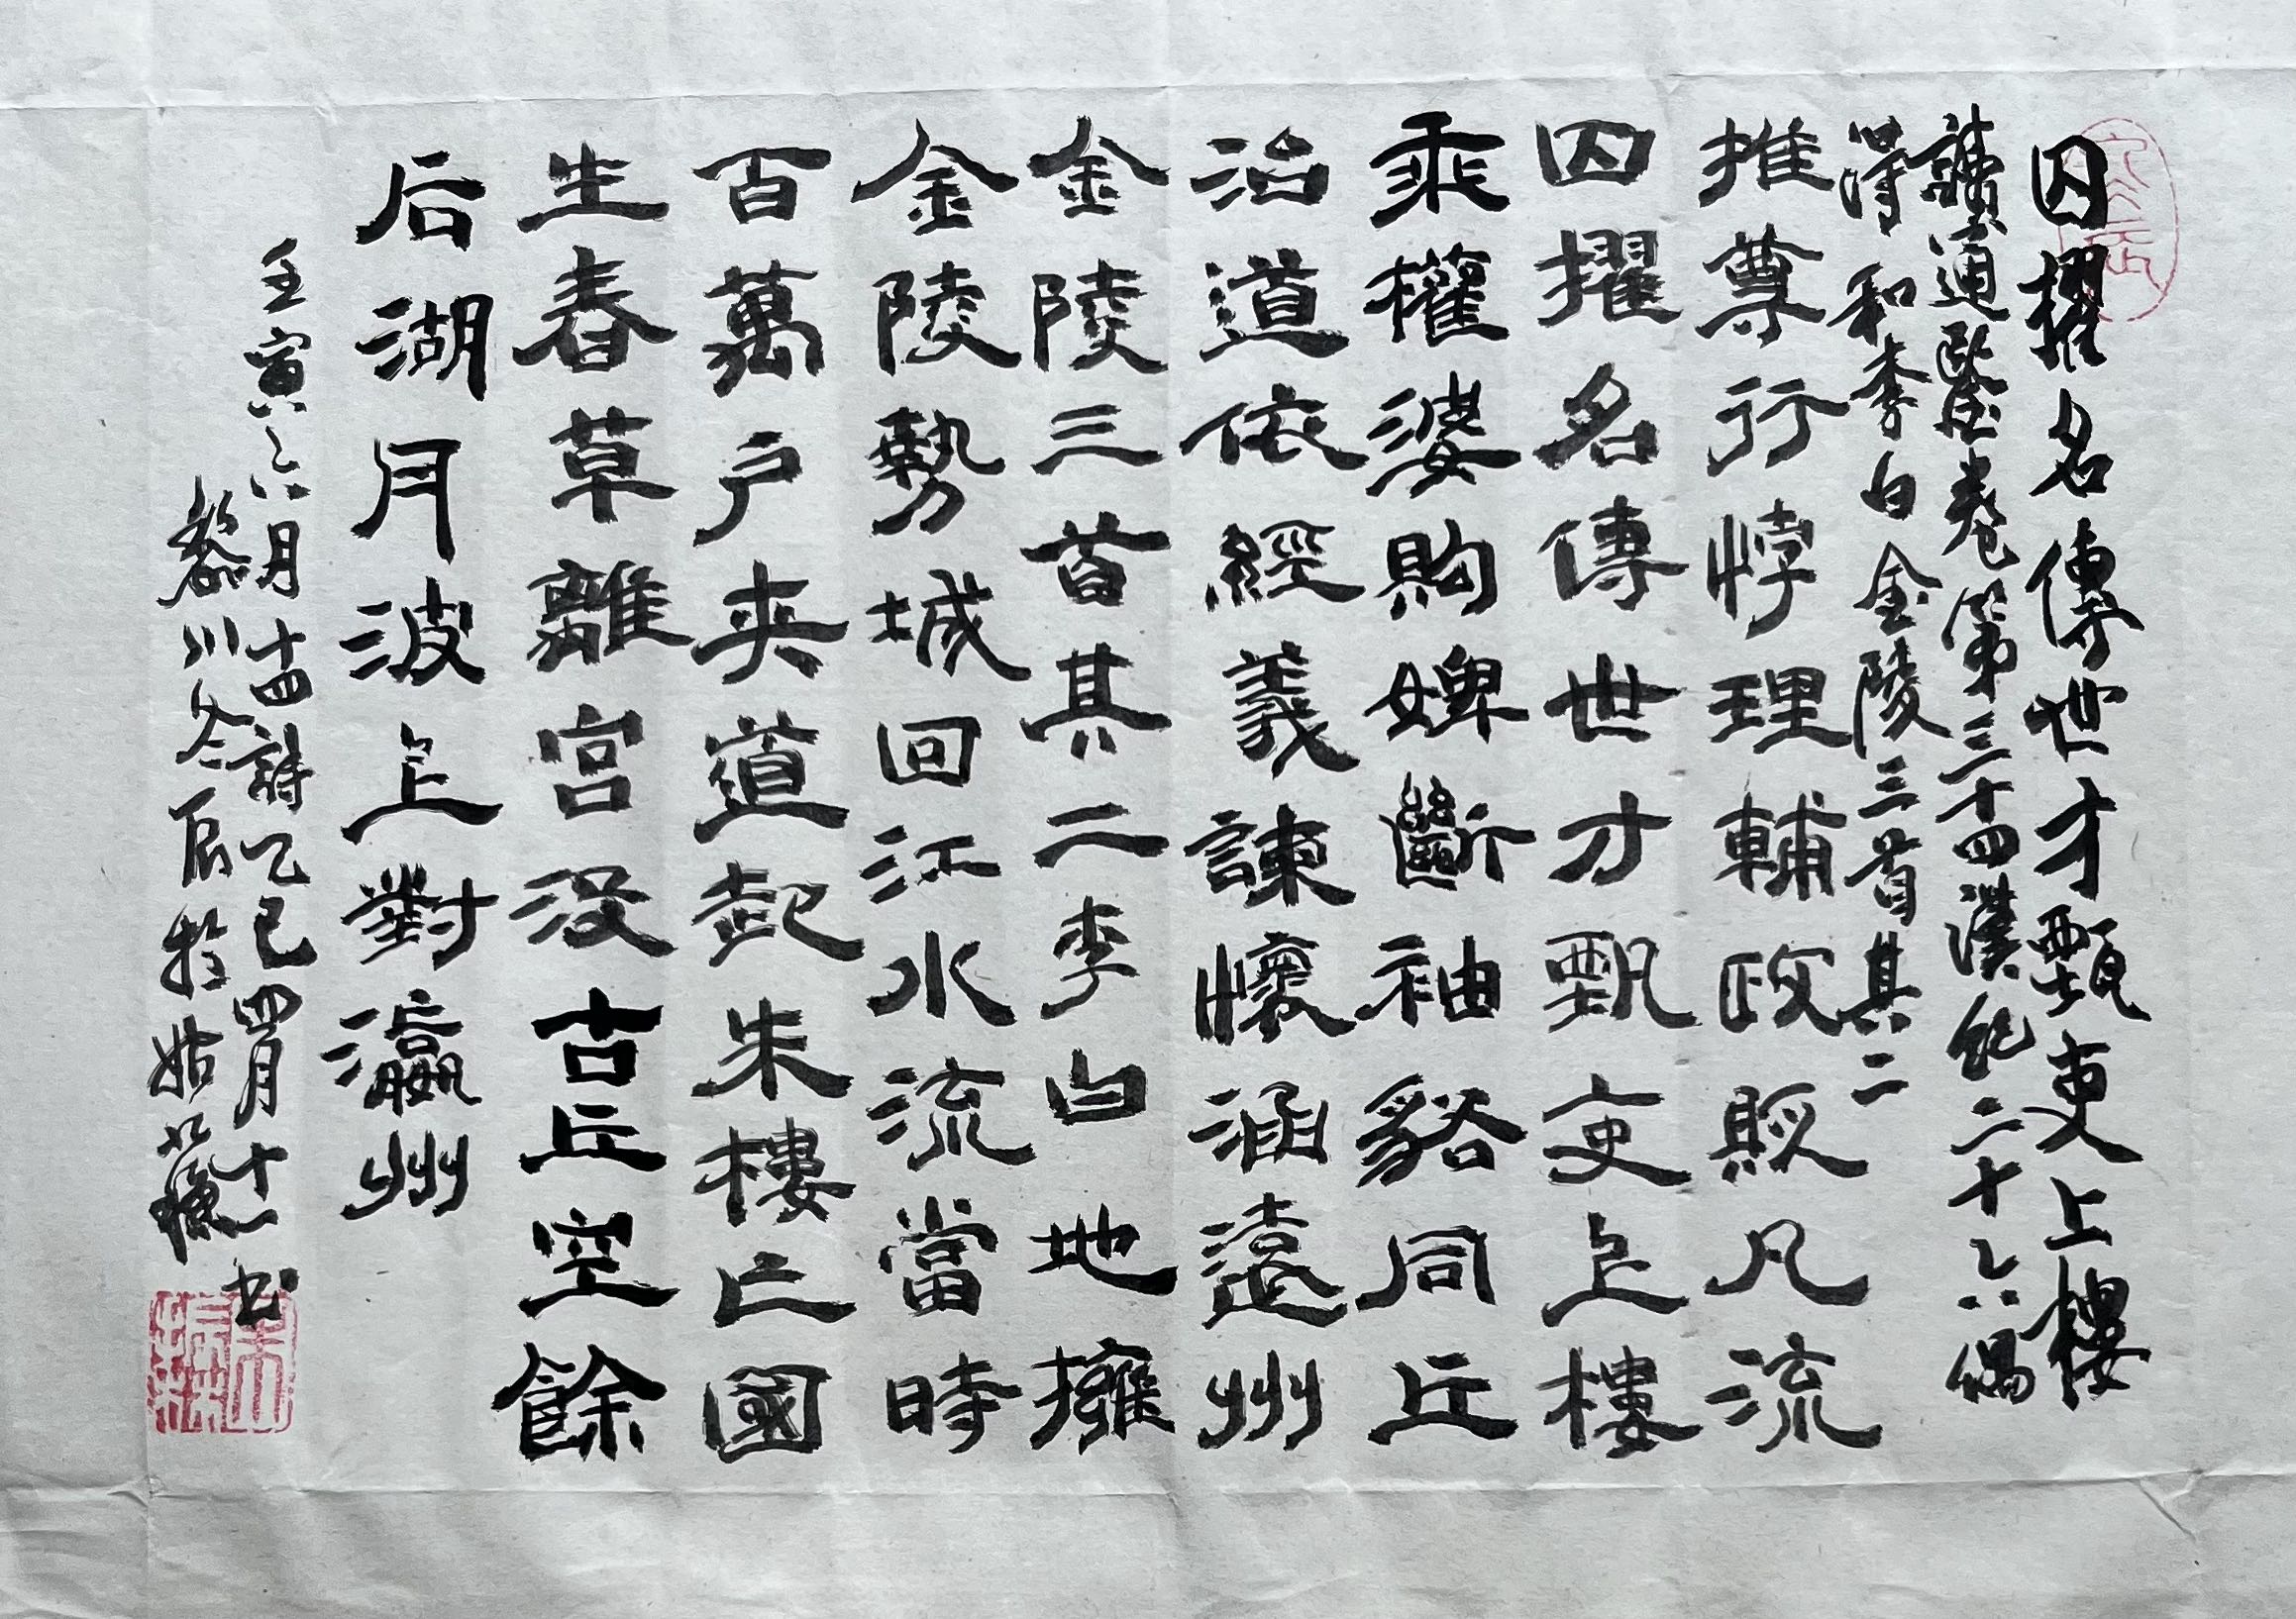 囚擢名傳世才甄吏上樓
讀通鑒卷第三十四漢紀二十六偶
得和李白金陵三首其二
推尊行悖理輔政贬凡流
囚擢名傳世才甄吏上樓
乘權婆購婢斷袖豁同丘
治道依經義諫懷涵遠州
金陵三首其二李白地擁
金陵勢城回江水流當時
百萬户夾道起朱樓亡國
生春草離宫没古丘空餘
后湖月波上對瀛州
壬寅六月十四詩乙巳四月十一书
黎川冬辰於姑蘇